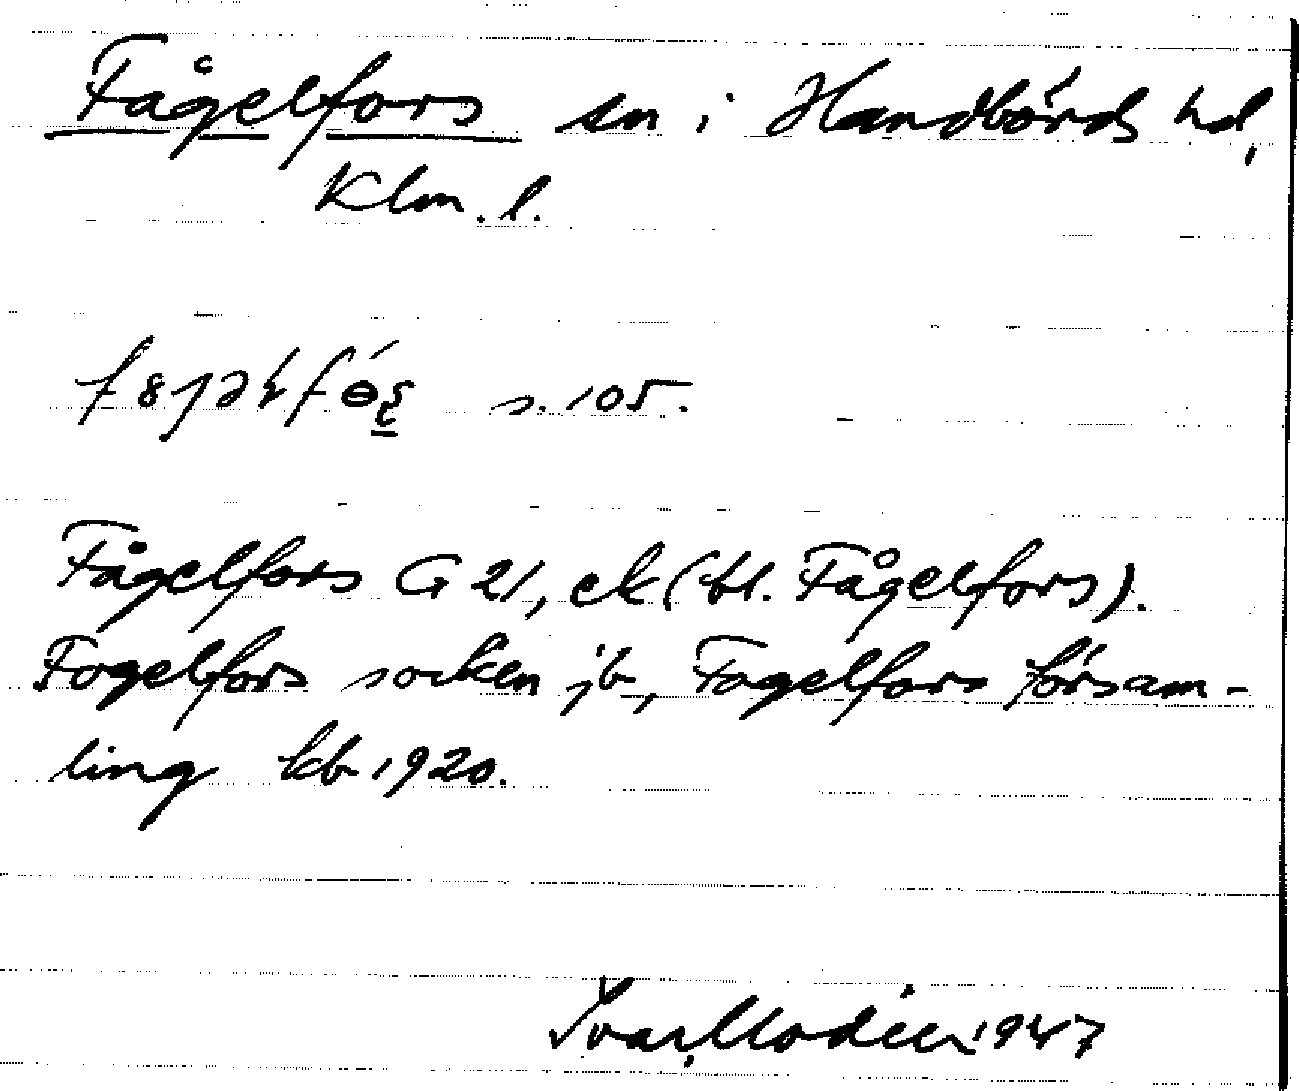 Fågelfors sn i Handbörds hd,
Klm. l.
s. 105.
Fågelfors G 21, ek (bl. Fågelfors).
Fogelfors socken jb, Fagelfors försam-
ling kb 1920.
Ivar Modéer 1947